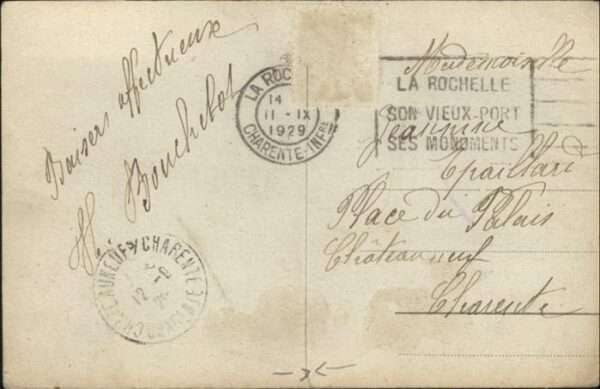 Baisers affectueux
H. Bouchelot
LA ROCHELLE
14
11 - IX
1929
CHARENTE-INFRE
LA ROCHELLE
SON VIEUX-PORT
SES MONUMENTS
Mademoiselle
Jeannine
Epaillard
Place du Palais
Châteauneuf
Charente
CHATEAUNEUF S/ CHARENTE
12